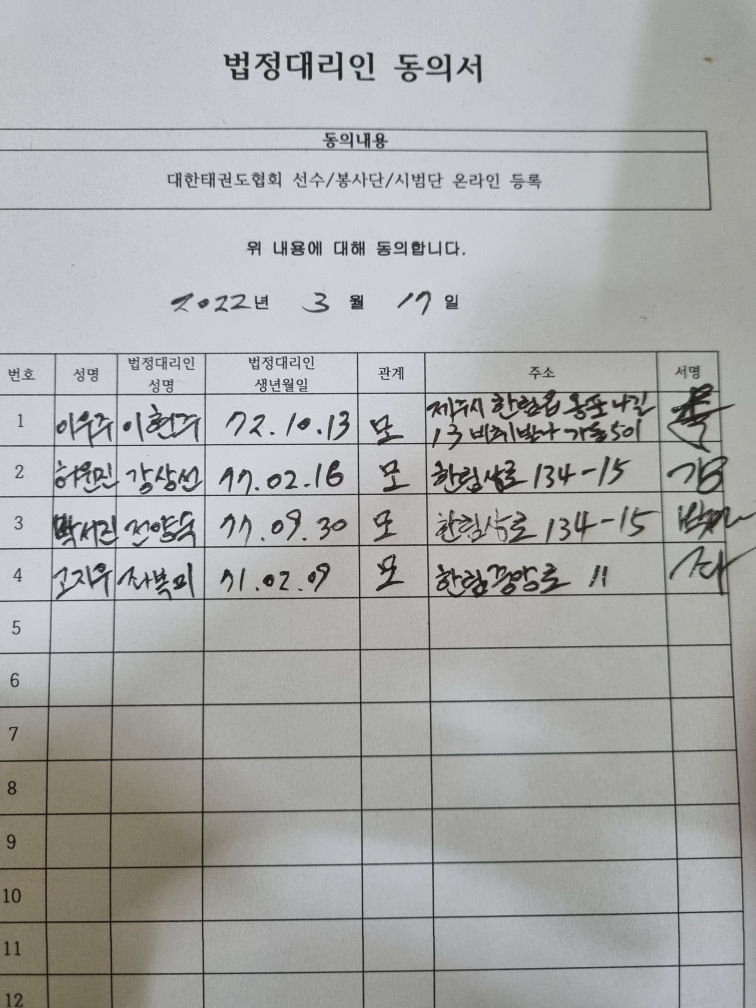 법정대리인 동의서
동의내용
대한태권도협회 선수/봉사단/시범단 온라인 등록
위 내용에 대해 동의합니다.
2022년 3월 17일
번호 성명 법정대리인 성명 법정대리인 생년월일 관계 주소 서명
1 이우주 이현주 72.10.13 모 제주시 한림읍 옹포나길
13 가동 501
2 허윤진 강상선 77.02.16 모 한림상로 134-15 강
3 박서린 전양숙 77.09.30 모 한림상로 134-15
4 고지우 좌복미 71.02.09 모 한림중앙로 11 좌
5
6
7
8
9
10
11
12